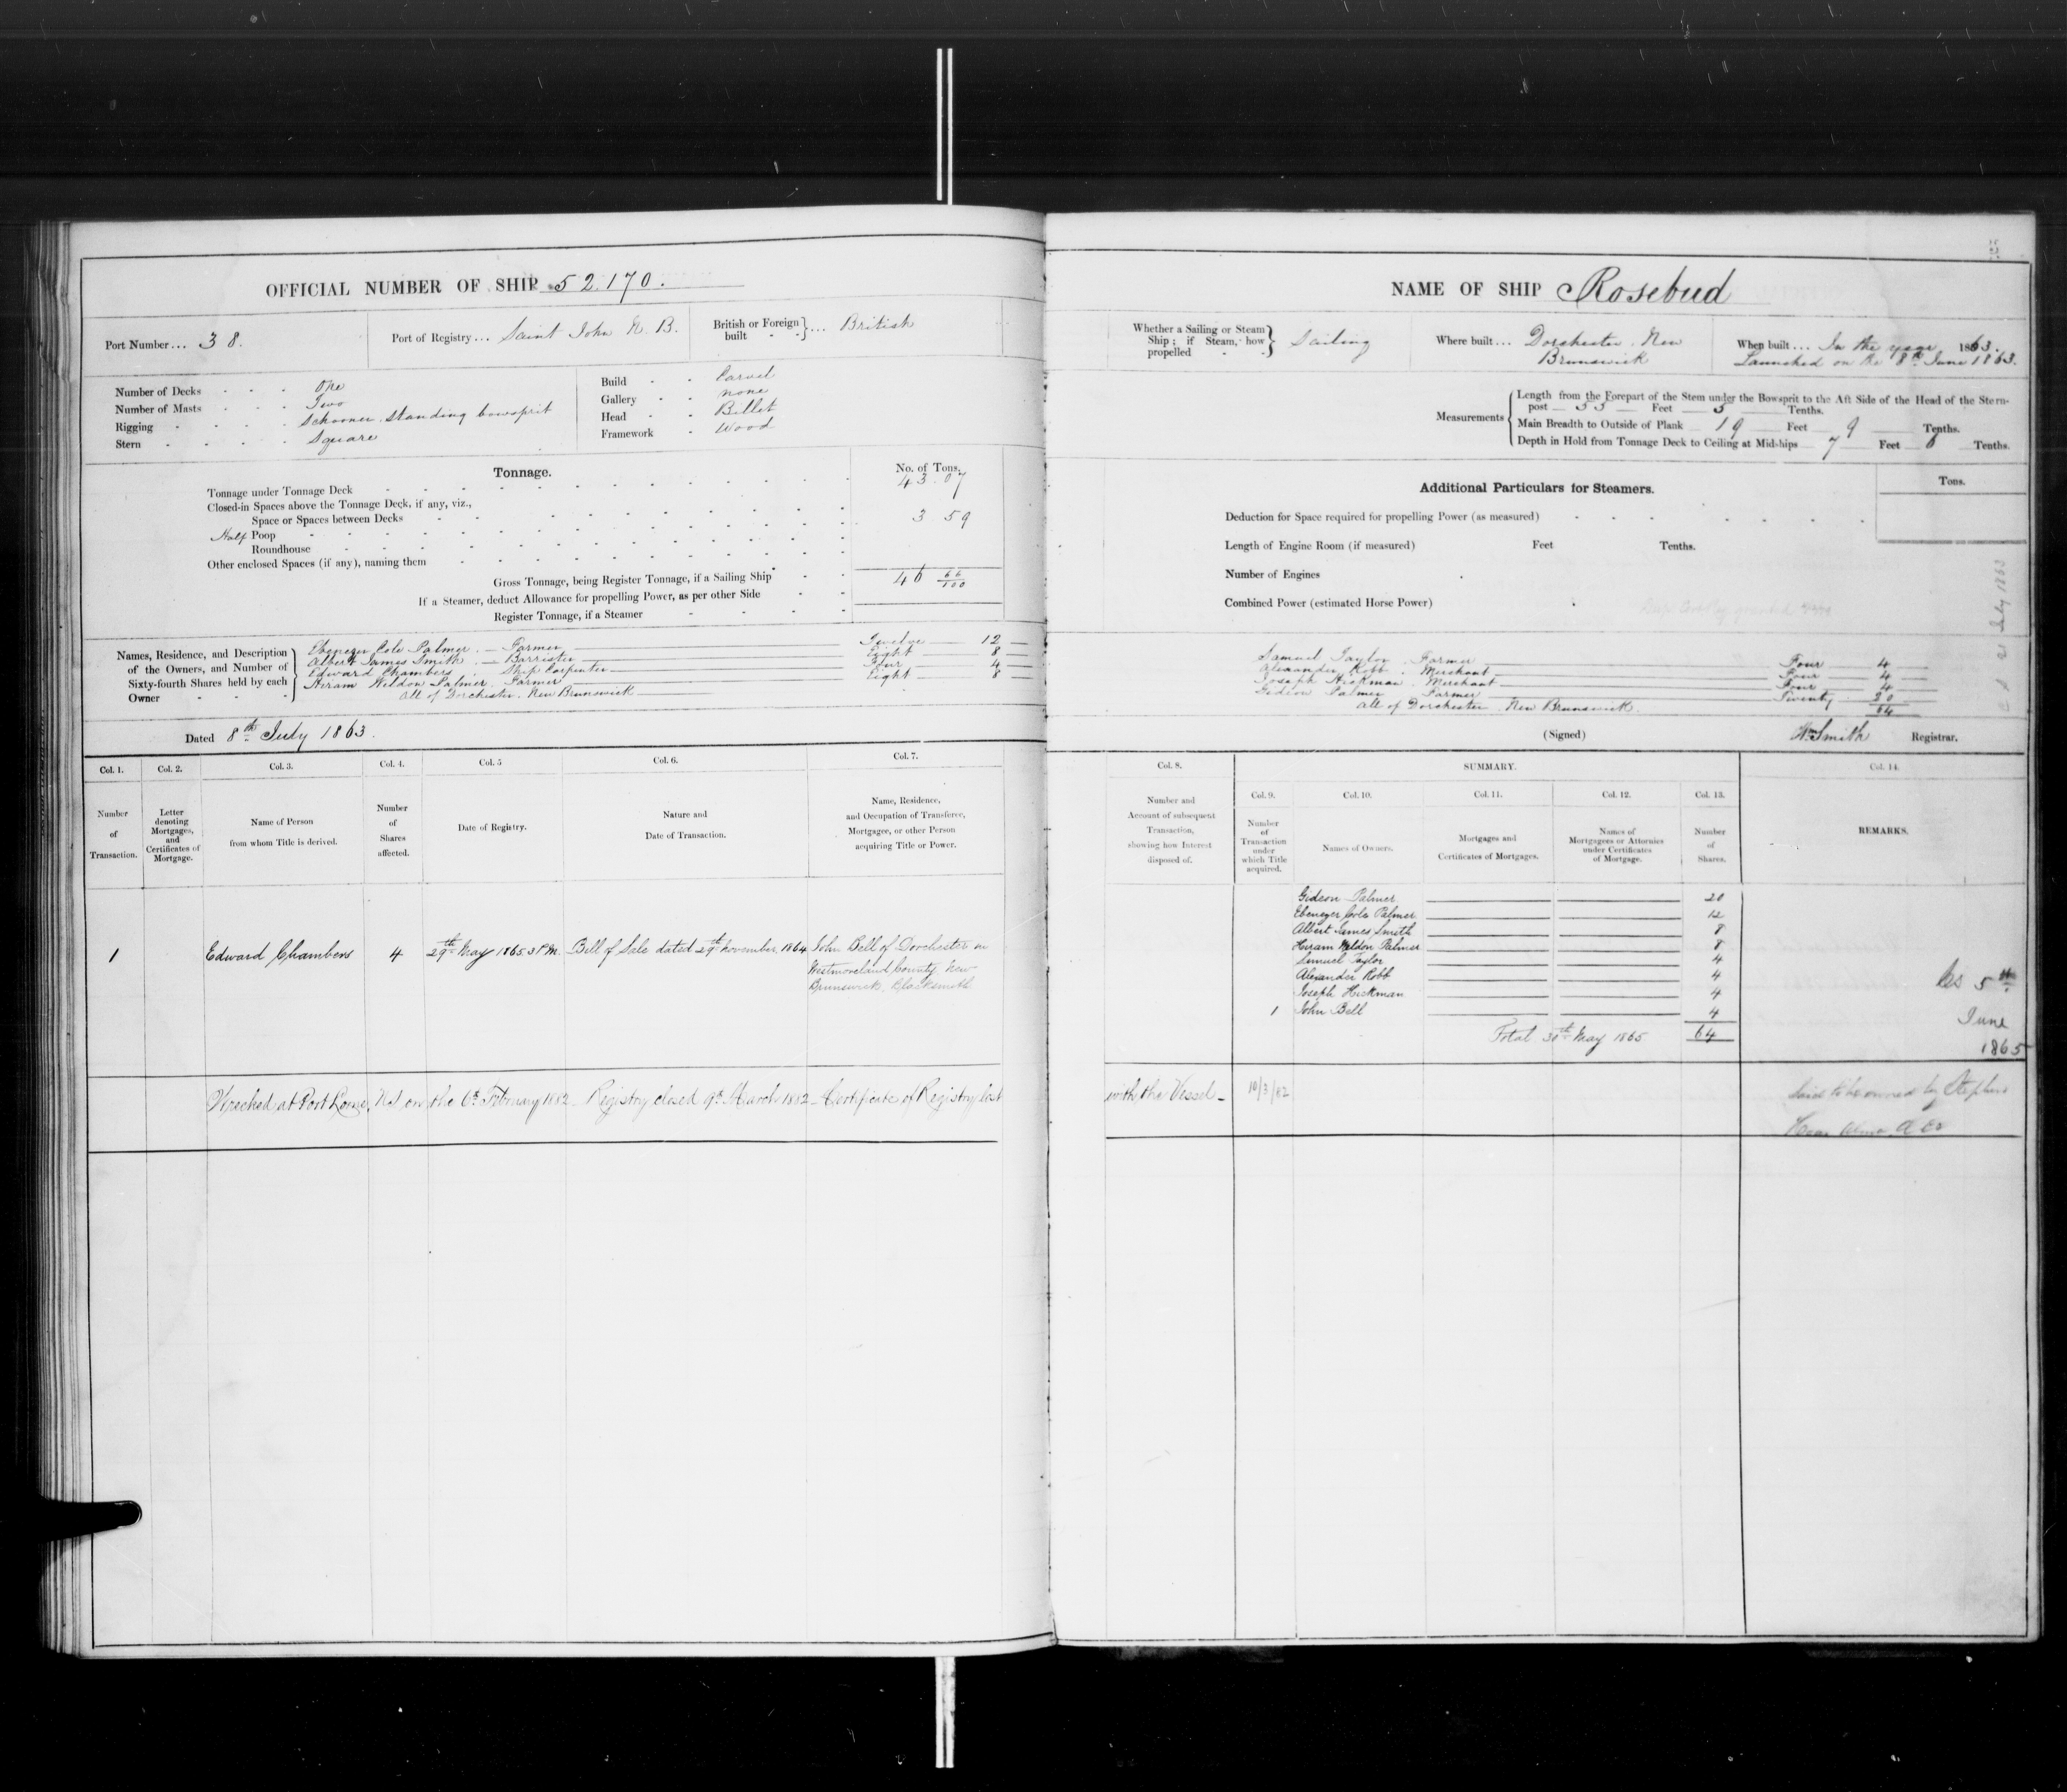 OFFICIAL NUMBER OF SHIP 52.170.
Port Number ... 38.
Port of Registry ... Saint John N. B.
British or Foreign built } ... British
Number of Decks One
Number of Masts Two
Rigging Schooner, standing bowsprit
Stern Square
Build Carvel
Gallery none
Head Billet
Framework Wood
Tonnage.
No. of Tons.
Tonnage under Tonnage Deck 43.07
Closed-in Spaces above the Tonnage Deck, if any, viz.,
Space or Spaces between Decks
Half Poop 3 59
Roundhouse
Other enclosed Spaces (if any), naming them
Gross Tonnage, being Register Tonnage, if a Sailing Ship 46 66/100
If a Steamer, deduct Allowance for propelling Power, as per other Side
Register Tonnage, if a Steamer
Names, Residence, and Description of the Owners, and Number of Sixty-fourth Shares held by each Owner
Ebenezer Cole Palmer — Farmer — Twelve — 12
Albert James Smith — Barrister — Eight — 8
Edward Chambers — Ship Carpenter — Four — 4
Hiram Weldon Palmer. Farmer — Eight — 8
All of Dorchester. New Brunswick
Dated 8th July 1863.
Col. 1. Col. 2. Col. 3. Col. 4. Col. 5 Col. 6. Col. 7.
Number of Transaction.
Letter denoting Mortgages, and Certificates of Mortgage.
Name of Person from whom Title is derived.
Number of Shares affected.
Date of Registry.
Nature and Date of Transaction.
Name, Residence, and Occupation of Transferee, Mortgagee, or other Person acquiring Title or Power.
1 Edward Chambers 4 29th May 1865 3 P.M. Bill of Sale dated 29th November 1864 John Bell of Dorchester in
Westmoreland County New
Brunswick. Blacksmith
NAME OF SHIP Rosebud
Whether a Sailing or Steam Ship; if Steam, how propelled } Sailing
Where built ... Dorchester. New Brunswick
When built ... In the year 1863.
Launched on the 8th June 1863.
Measurements
Length from the Forepart of the Stem under the Bowsprit to the Aft Side of the Head of the Stern-
post Feet 5 Tenths.
Main Breadth to Outside of Plank 19 Feet 9 Tenths.
Depth in Hold from Tonnage Deck to Ceiling at Mid-ships 7 Feet Tenths.
Additional Particulars for Steamers.
Tons.
Deduction for Space required for propelling Power (as measured)
Length of Engine Room (if measured) Feet Tenths.
Number of Engines
Combined Power (estimated Horse Power)
July 1863
Samuel Taylor. Farmer — Four 4
Alexander Robb. Merchant — Four 4
Joseph Hickman. Merchant — Four 4
Gideon Palmer Farmer — Twenty 20
All of Dorchester. New Brunswick. 64
(Signed) Wm Smith Registrar.
Col. 8. SUMMARY. Col. 14.
Col. 9. Col. 10. Col. 11. Col. 12. Col. 13.
Number and Account of subsequent Transaction, showing how Interest disposed of.
Number of Transaction under which Title acquired.
Names of Owners.
Mortgages and Certificates of Mortgages.
Names of Mortgagees or Attornies under Certificates of Mortgage.
Number of Shares.
REMARKS.
Gideon Palmer 20
Ebenezer Cole Palmer 12
Albert James Smith 8
Hiram Weldon Palmer 8
Samuel Taylor 4
Alexander Robb 4
Joseph Hickman 4
1 John Bell 4
Total 30th May 1865 64
5th
June
1865
Wrecked at Port Lorne, N.S. on the 6th February 1882 - Registry closed 9th March 1882 - Certificate of Registry lost with the Vessel -
10/3/82
Said to be owned by Stephen